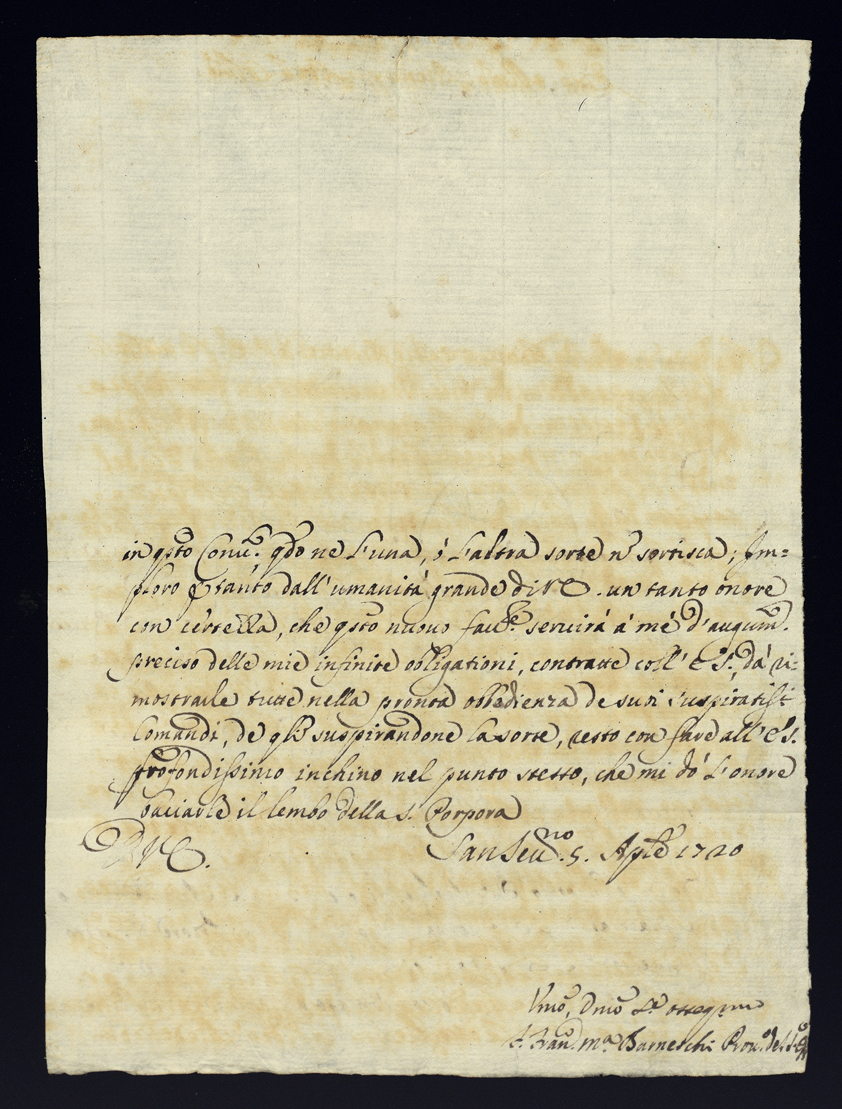 in qsto Conu.to qdo ne L'una, ó L'altra sorte nō sortisca; Im=
ploro ꝑtanto dall'umanitá grande di VE. un tanto onore
con certezza, che qsto nuovo seruirá á mé d'augum.to
preciso delle mie infinite obligationi, contratte coll' E S., dá ri=
mostrarle tutte nella pronta obbedienza de suoi suspiratiss.i
Comandi, de qli suspirandone la sorte, resto con fare all' E S.
profondissimo inchino nel punto stesso, che mi dó L'onore
baciarle il lembo della S. Porpora
DVE.
San Seu.no 5. Aple 1720
Vmo, Dmo
F. Fran.o M.a Prou.